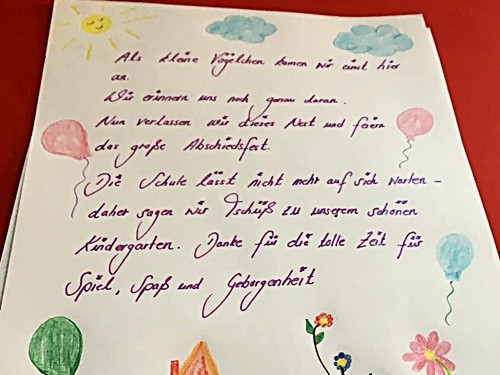 Als kleine Vögelchen kamen wir einst hier
an.
Wir erinnern uns noch genau daran.
Nun verlassen wir dieses Nest und feiern
das große Abschiedsfest.
Die Schule lässt nicht mehr auf sich warten –
daher sagen wir Tschüß zu unserem schönen
Kindergarten. Danke für die tolle Zeit für
Spiel, Spaß und Geborgenheit